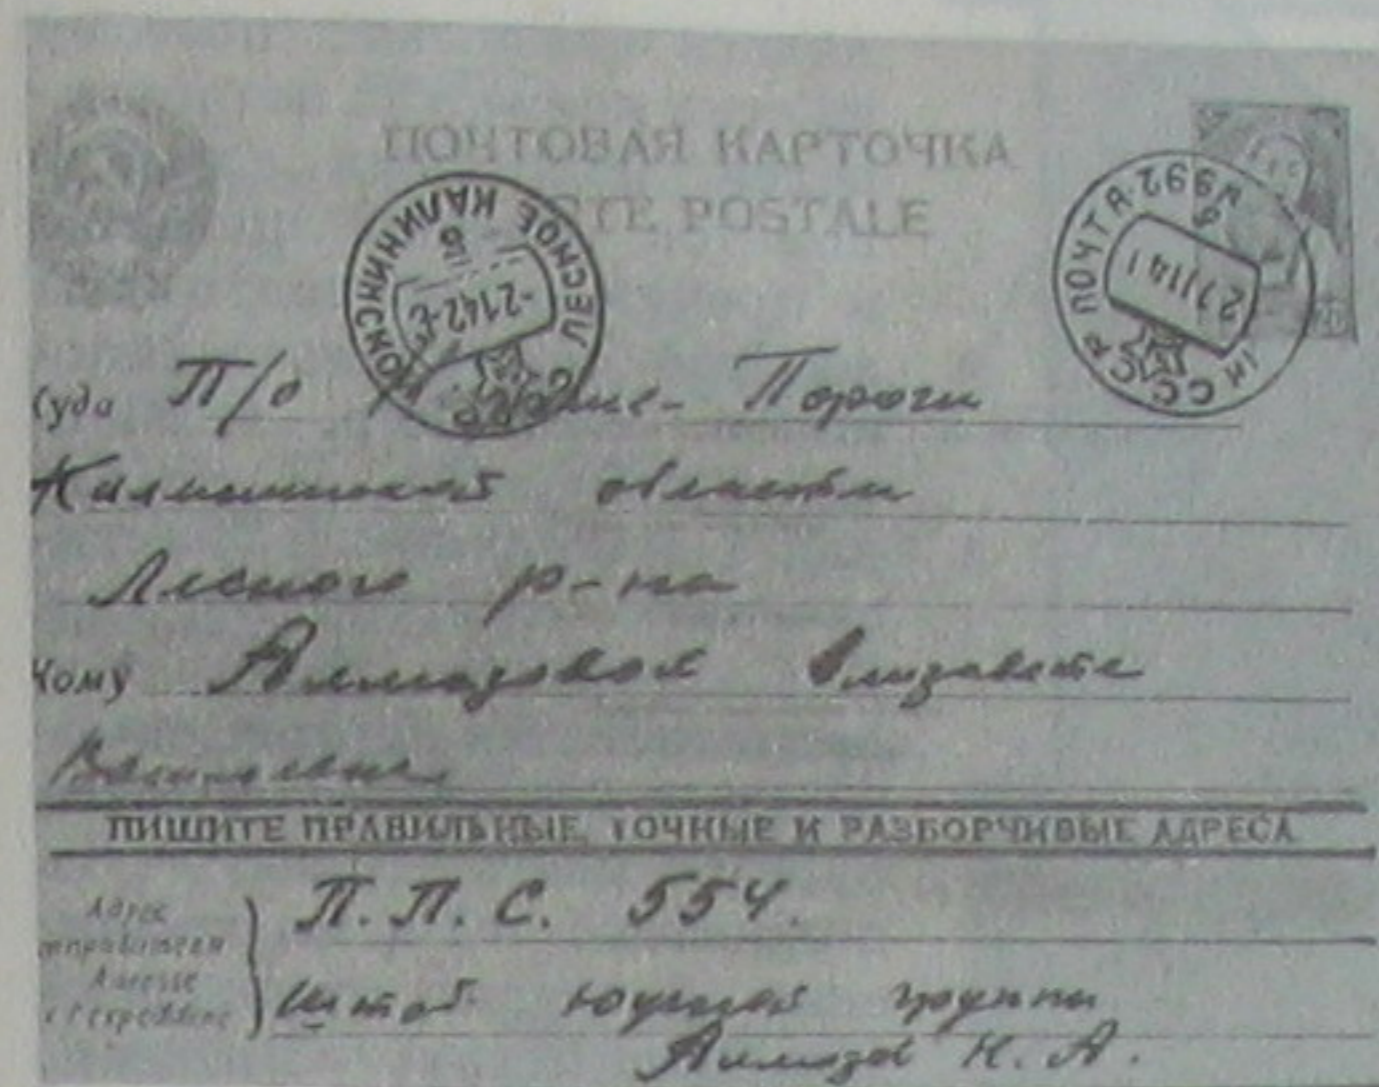 ПОЧТОВАЯ КАРТОЧКА
CARTE POSTALE
ЛЕСНОЕ КАЛИНИНСКОЙ
СССР
-2142-8
СССР ПОЧТА-В-992
27 11 41
Куда П/о Пороги
Калининской области
Лесного р-на
Кому Алмазовой Елизавете
Васильевне
ПИШИТЕ ПРАВИЛЬНЫЕ, ТОЧНЫЕ И РАЗБОРЧИВЫЕ АДРЕСА
Адрес
отправителя
Adresse
de l'expéditeur
П.П.С. 554.
Штаб южной группы
Алмазов Н. А.